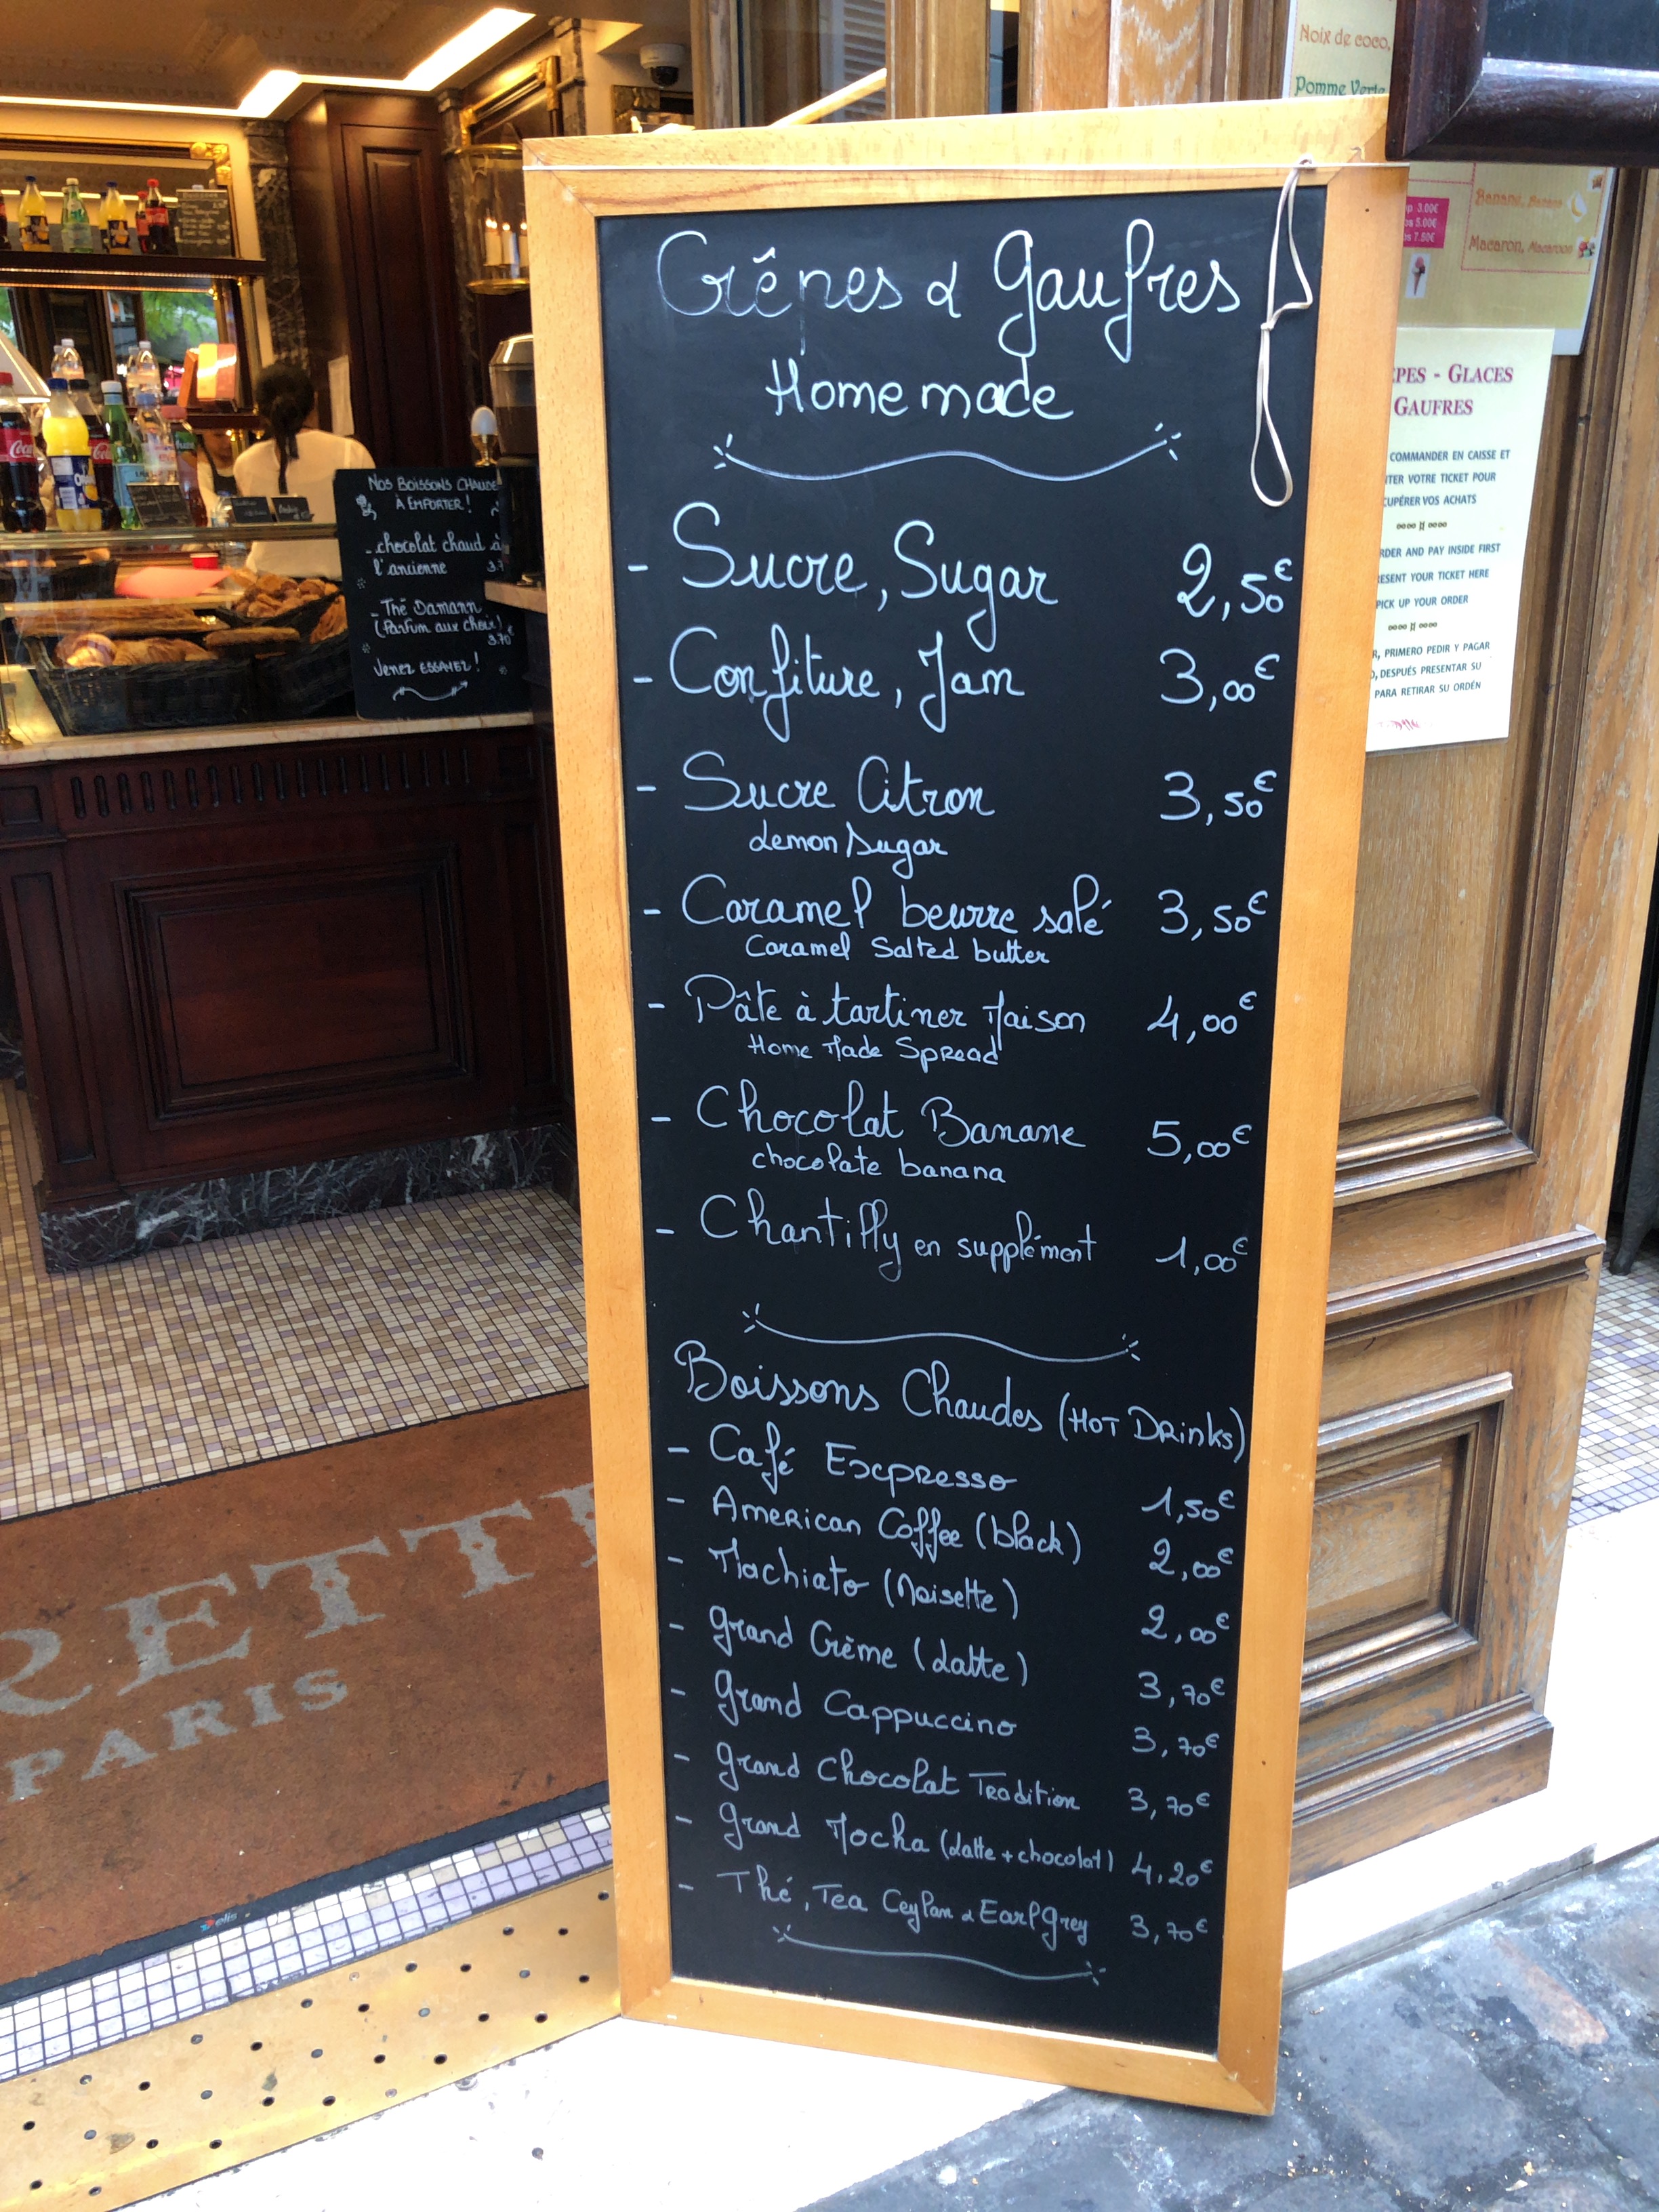 Crêpes & Gaufres
Home made
- Sucre, Sugar 2,50€
- Confiture, Jam 3,00€
- Sucre Citron 3,50€
Lemon Sugar
- Caramel beurre salé 3,50€
Caramel Salted butter
- Pâte à tartiner Maison 4,00€
Home Made Spread
- Chocolat Banane 5,00€
chocolate banana
- Chantilly en supplément 1,00€
Boissons Chaudes (HOT DRinks)
- Café Expresso 1,50€
- American Coffee (black) 2,00€
- Machiato (Noisette) 2,00€
- Grand Crème (Latte) 3,70€
- Grand Cappuccino 3,70€
- Grand Chocolat Tradition 3,70€
- Grand Mocha (Latte + chocolat) 4,20€
- Thé, Tea Ceylan & Earl Grey 3,70€
NOS BOISSONS CHAUDE
À EMPORTER!
- chocolat chaud à
l'ancienne 3.7
- Thé Damann
(Parfum aux choix) 3.70€
Venez ESSAYEZ!
Noix de coco,
Pomme Verte
3.00€
5.00€
7.50€
Banane, Banana
Macaron, Macaroon
PES - GLACES
GAUFRES
COMMANDER EN CAISSE ET
TER VOTRE TICKET POUR
CUPÉRER VOS ACHATS
RDER AND PAY INSIDE FIRST
ESENT YOUR TICKET HERE
PICK UP YOUR ORDER
R, PRIMERO PEDIR Y PAGAR
O, DESPUÉS PRESENTAR SU
PARA RETIRAR SU ORDÉN
RETT
PARIS
elis
Coca